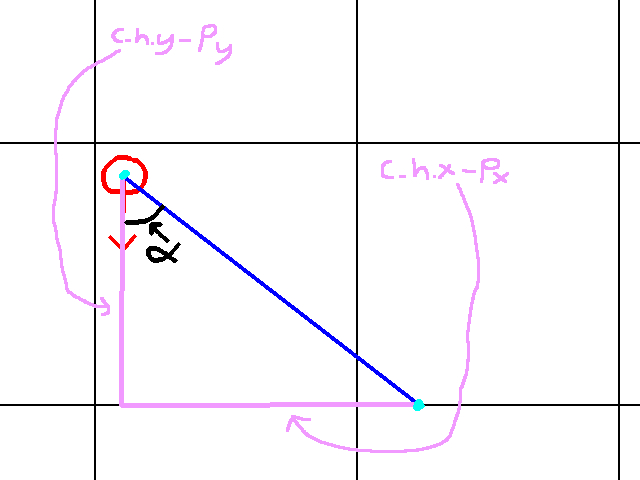 c.h.y-Py
c.h.x-Px
α